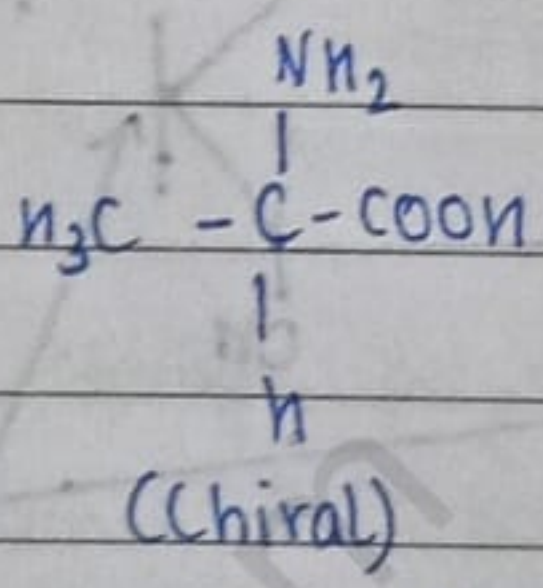 NH₂
|
H₃C - C - COOH
|
H
(Chiral)